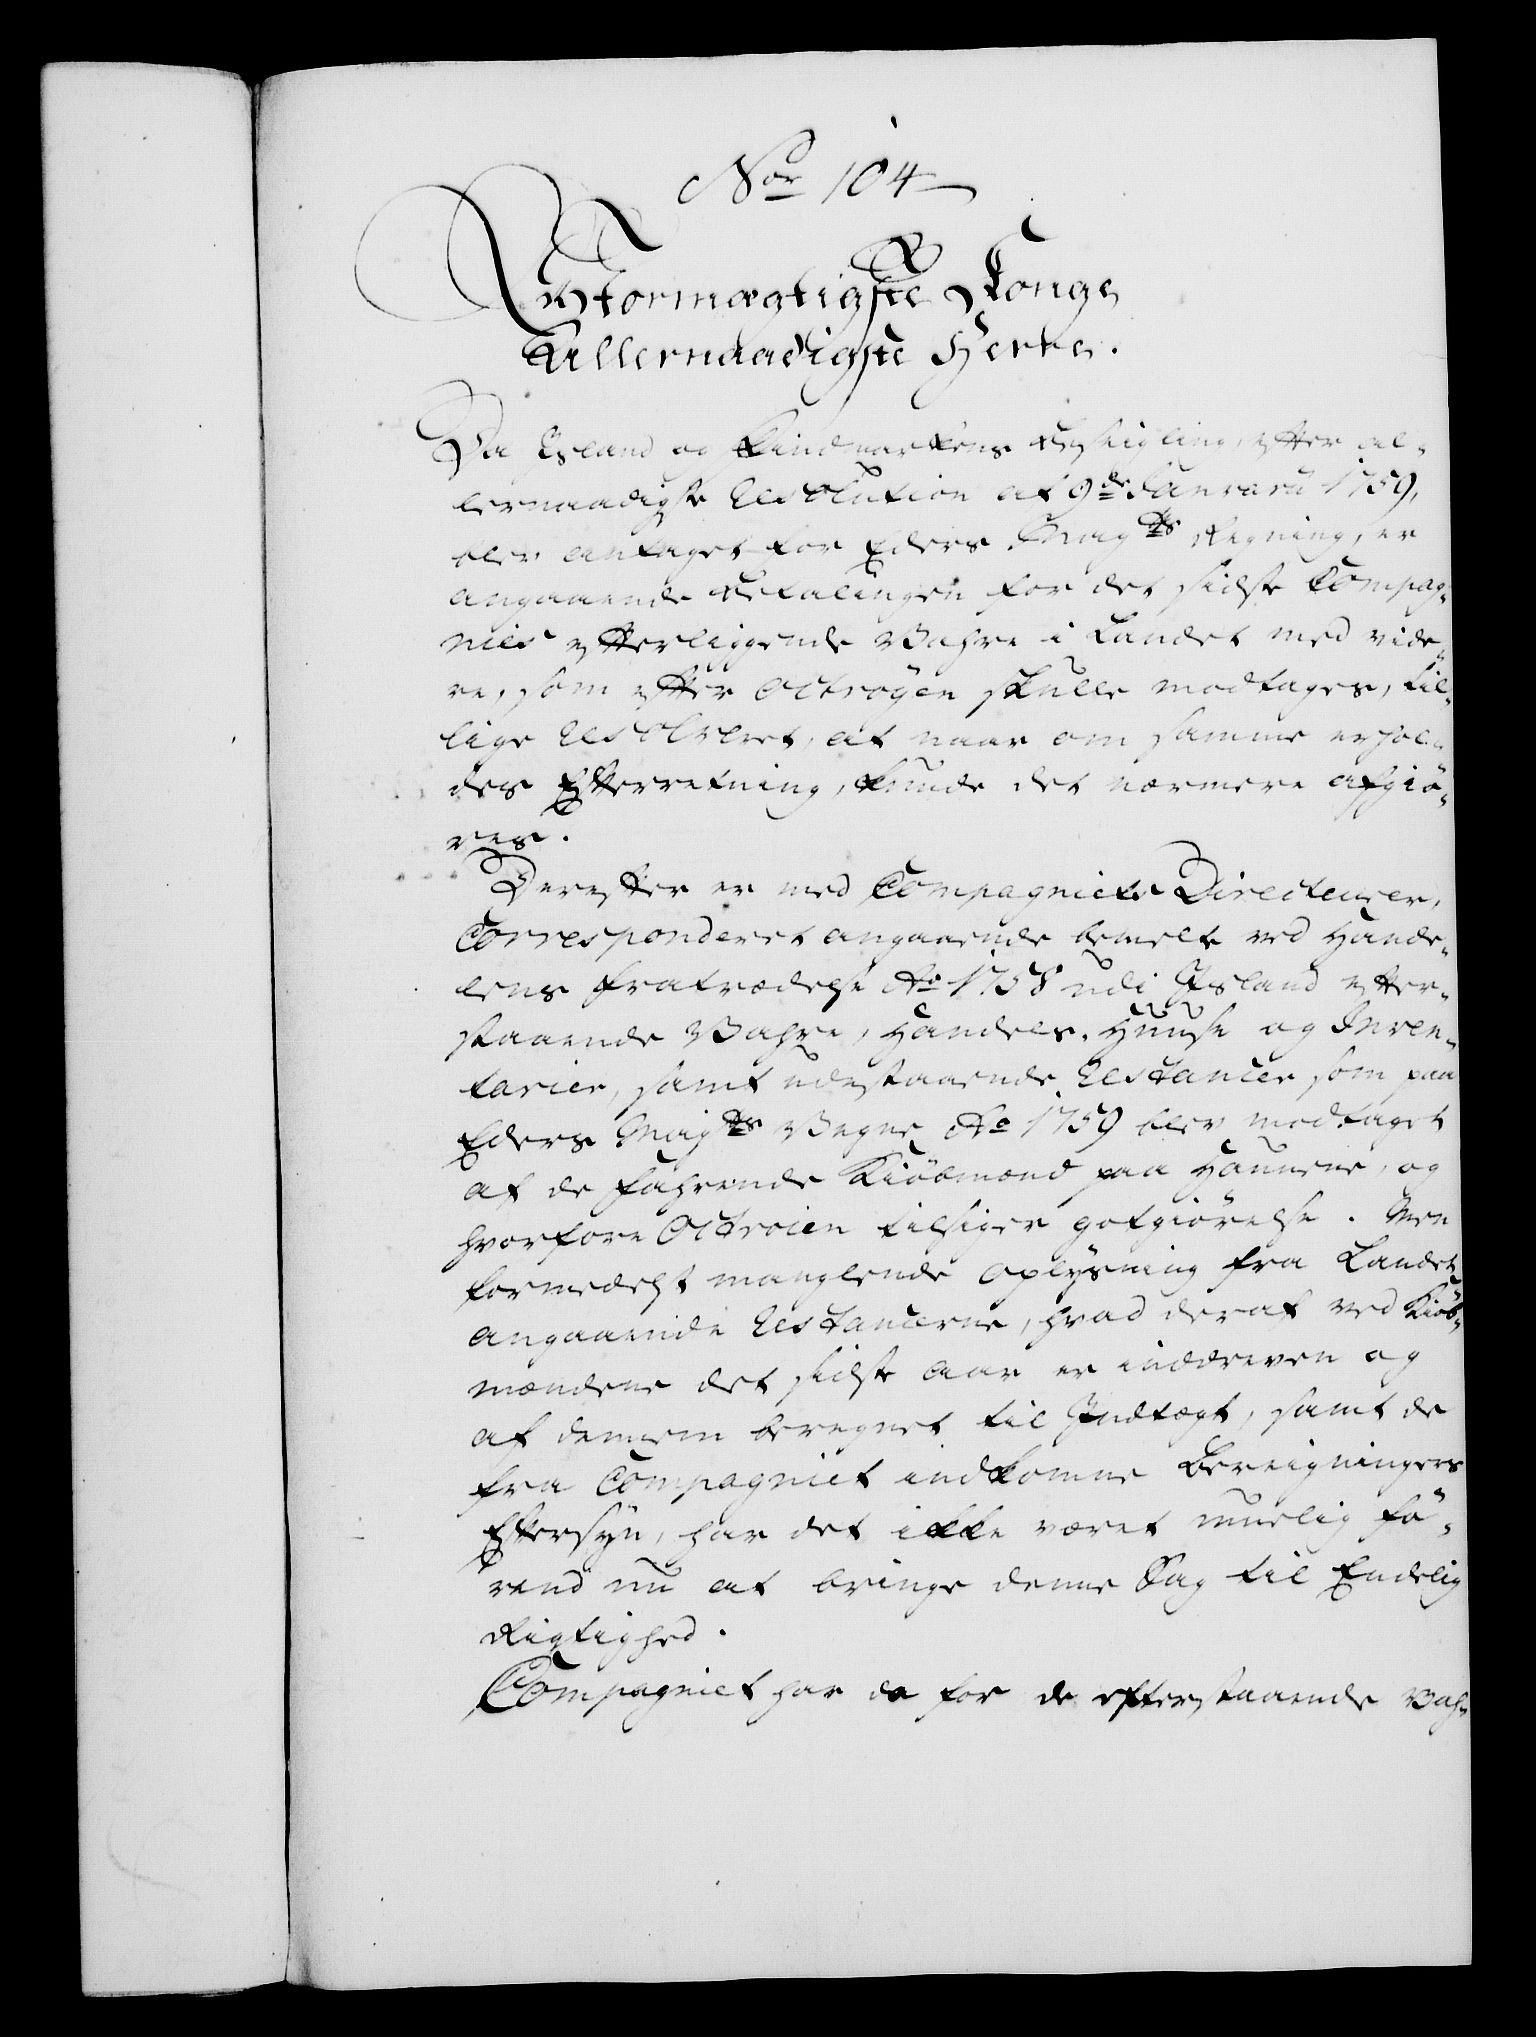 No 104
Stormægtigste Konge
Allernaadigste Herre.
Da Island og Findmarkens Beseigling, efter al¬
lernaadigste Resolution af 9de Januarii 1759,
blev antaget for Eders Mayts Regning, er
angaaende Betalingen for det sidste Compag¬
nies efterliggende Vahre i Landet med vide¬
re, som efter Octroyen skulle modtages, til¬
lige Resolveret, at naar om samme erhol¬
des Efterretning, kunde det nærmere afgiø¬
res.
Derefter er med Compagniets Directeurer,
Corresponderet angaaende bemelte ved Hande¬
lens fratrædelse Ao 1758 udi Island efter¬
staaende Vahre, Handels-Huuse og Inven¬
tarier, samt udestaaende Restancer som paa
Eders Mayts Vegne Ao 1759 blev modtaget
af de farende Kiøbmænd paa Haunene, og
hvorfore Octroien tilsiger gotgiørelse. Men
formedelst manglende Oplysning fra Landet
angaaende Restancerne, hvad deraf ved Kiøb¬
mændene det sidste Aar er inddreven og
af dennem beregnet til Indtægt, samt de
fra Compagniet indkomne Beregningers
Eftersyn, har det ikke været muelig fø¬
rend nu at bringe denne Sag til Endelig
Rigtighed.
Compagniet har da for de efterstaaende Vah¬